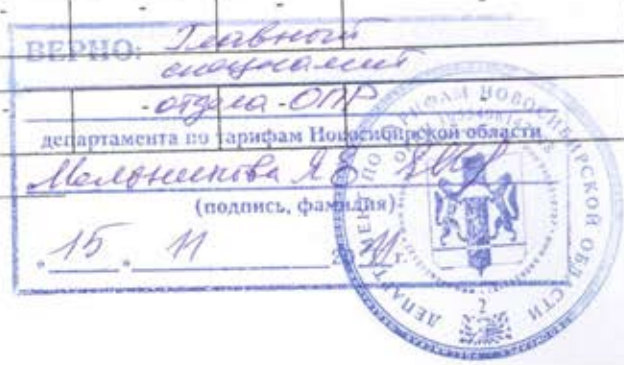 ВЕРНО: Главный
специалист
отдела ОПР
департамента по тарифам Новосибирской области
(подпись, фамилия)
" 15 " 11 г.
ДЕПАРТАМЕНТ ПО ТАРИФАМ НОВОСИБИРСКОЙ ОБЛАСТИ
2